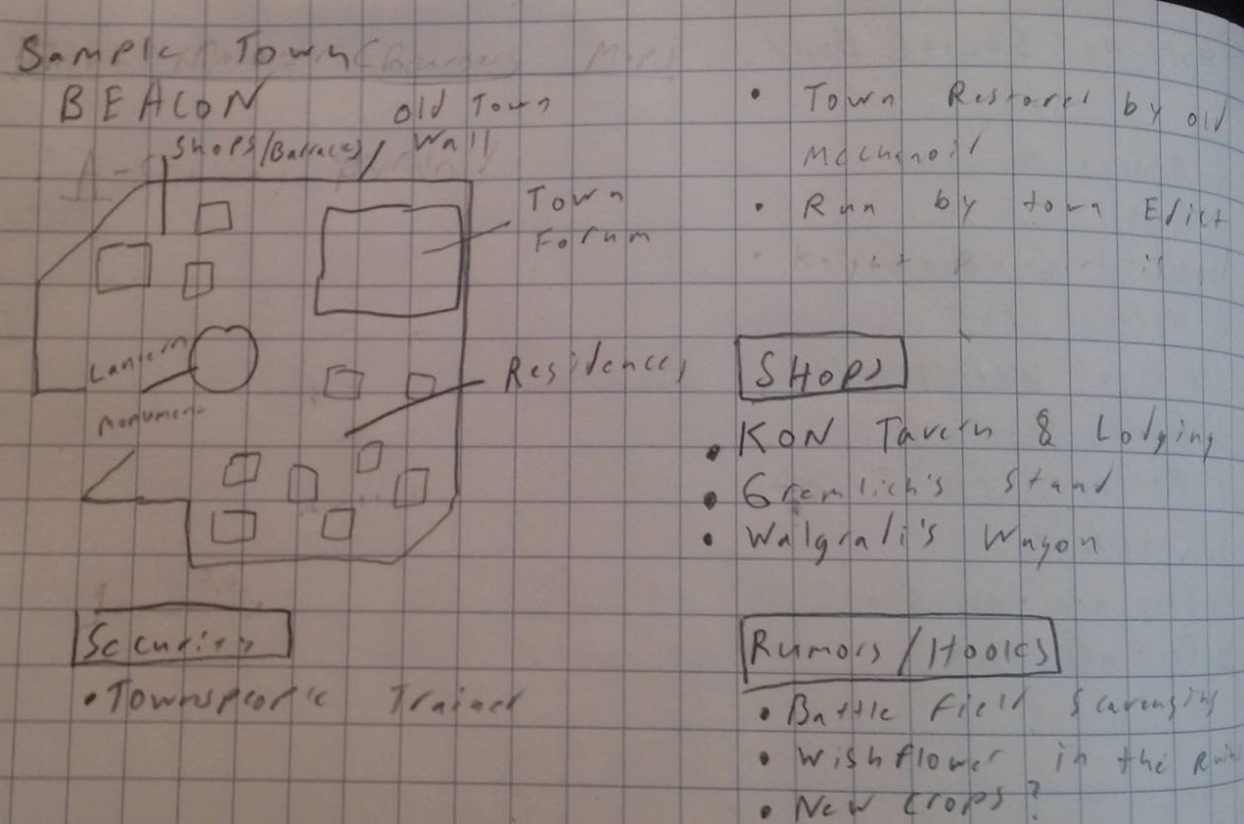 Sample Town
BEACON
Old Town
Wall
Shops/Barracks
Town
Forum
Lantern
Monument
Residences
Security
• Townspeople Trained
• Town Restored by old
Mechanoid
• Run by town Edict
SHOPS
• KON Tavern & Lodging
• Gremlich's Stand
• Walgrali's Wagon
Rumors/Hooks
• Battle Field Scavenging
• Wishflower in the Ruins
• New Crops?